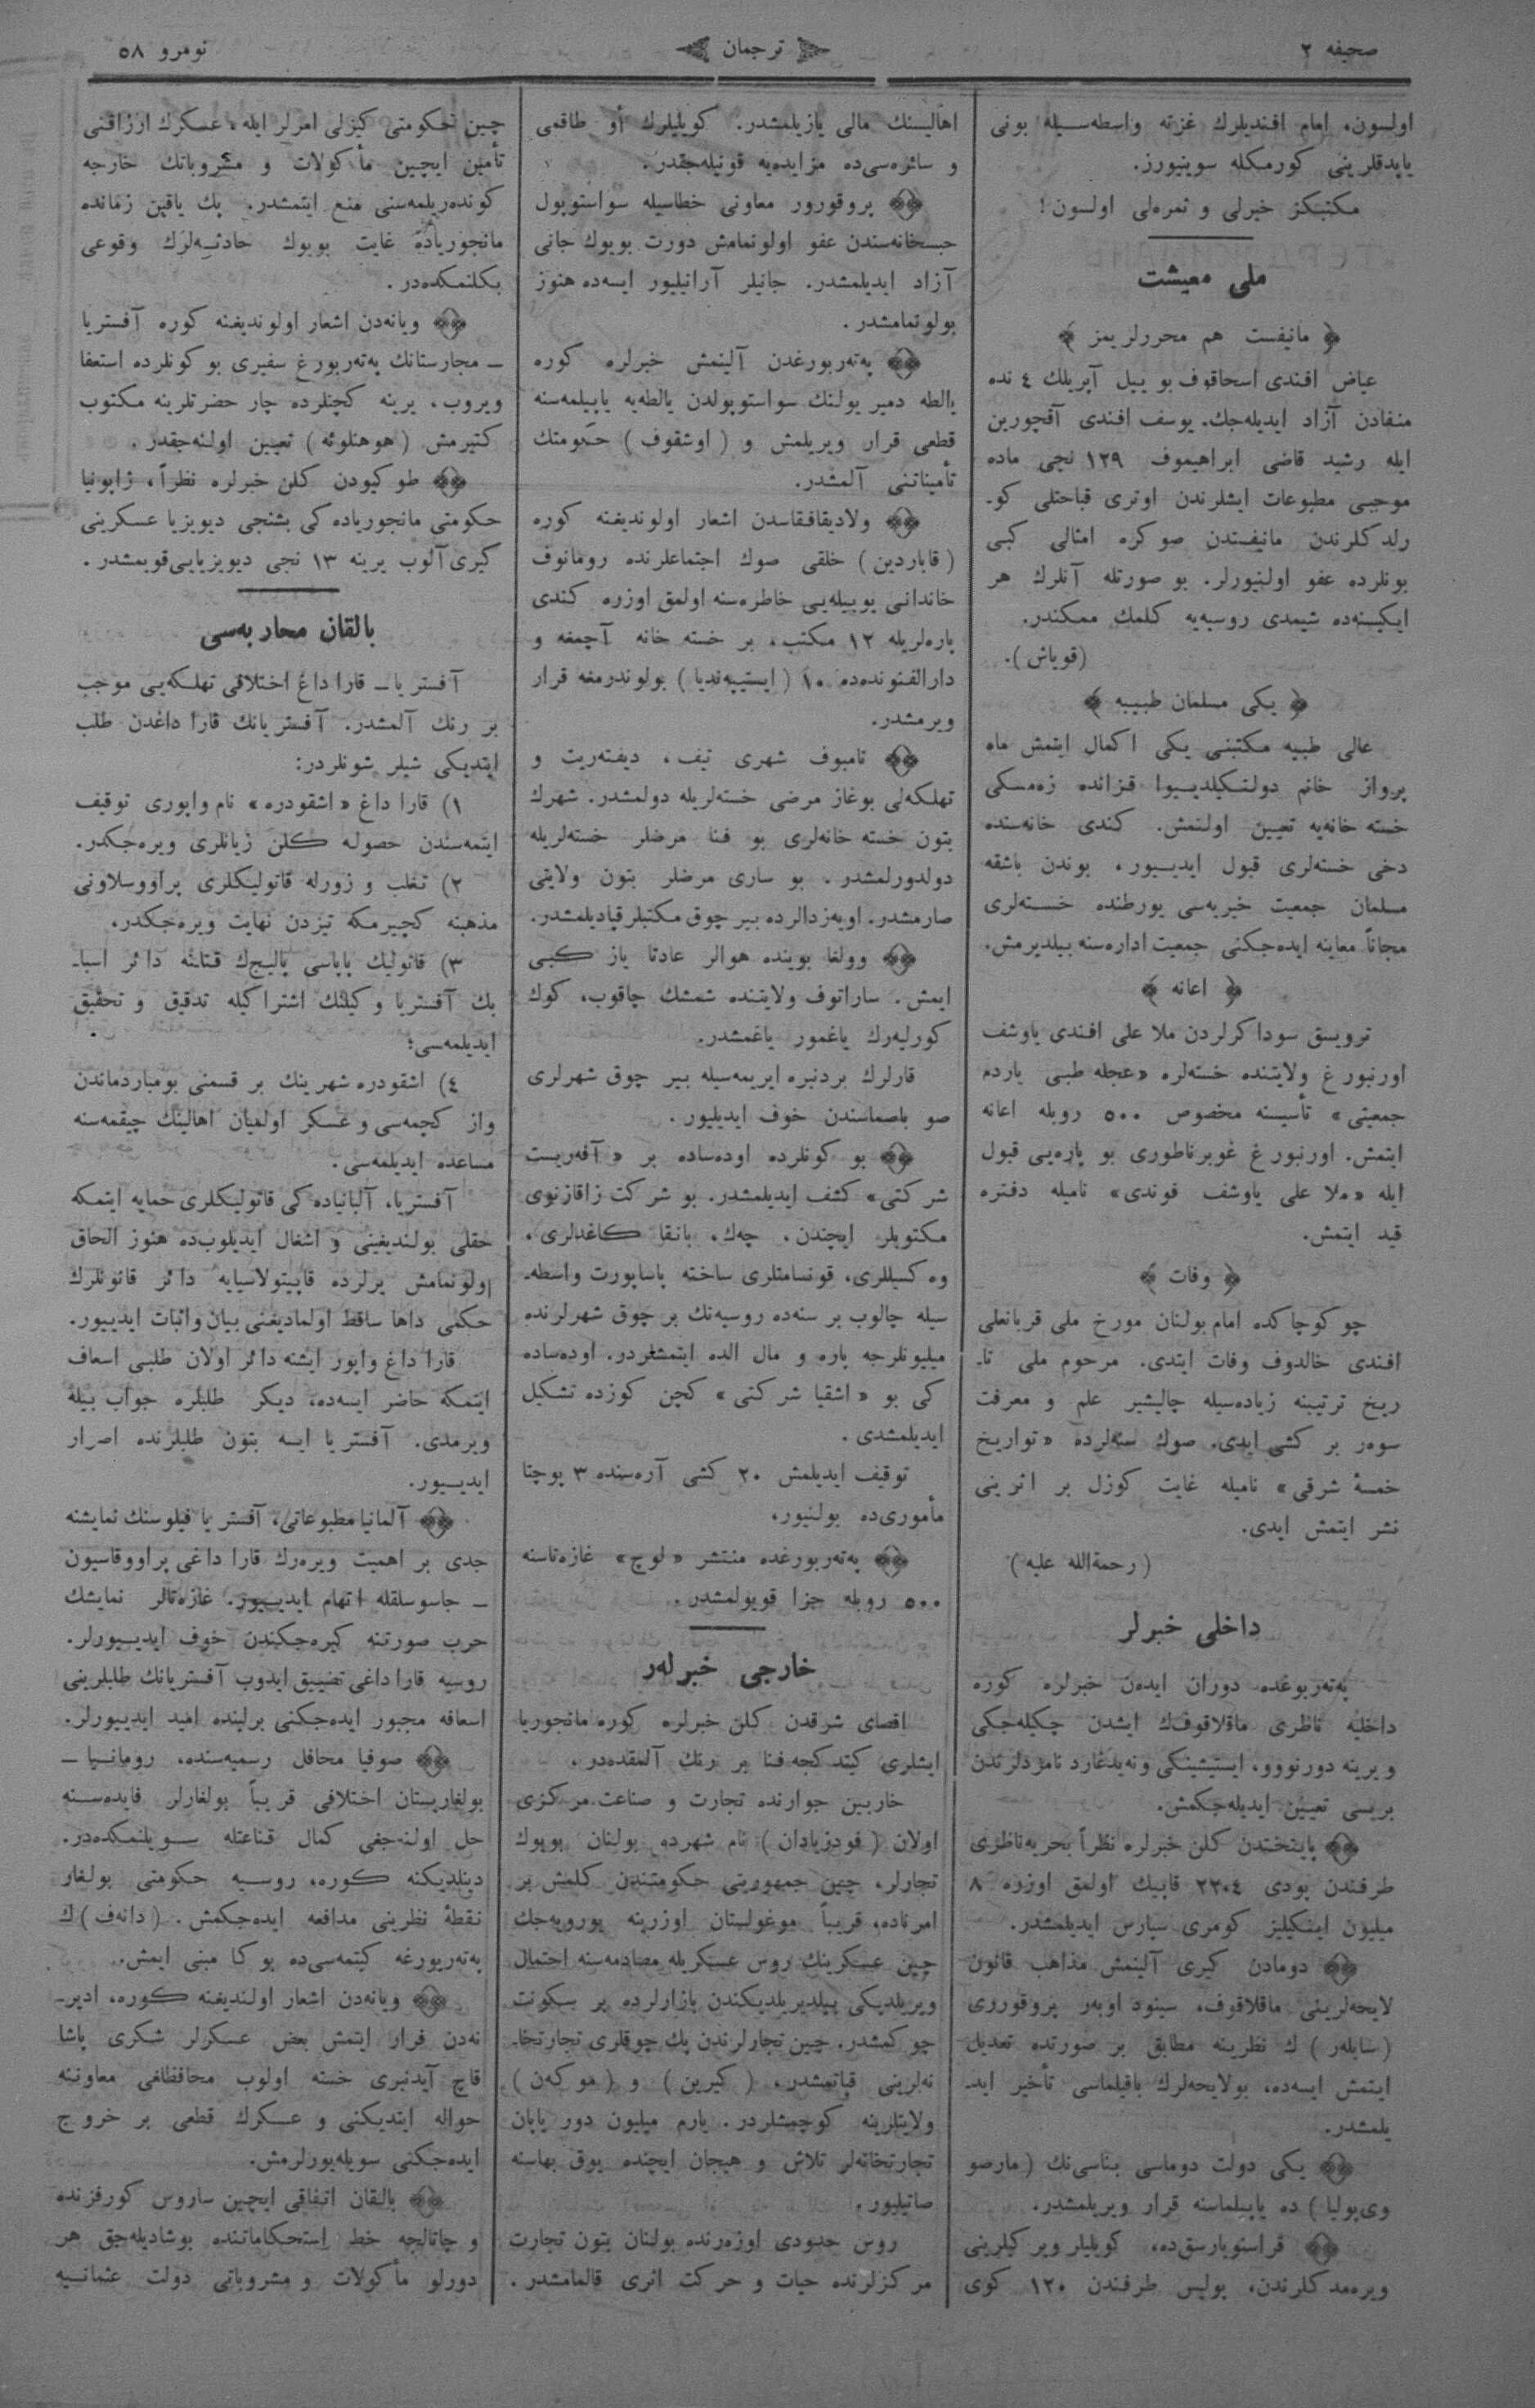 صحیفه ٢
ترجمان
نومرو ٥٨
اولسون، امام افندیلرك غزته واسطه‌سیله بونی
یاپدقلرینی كورمكله سوینیورز.
مكتبكز خیرلی و ثمره‌لی اولسون!
ملی معیشت
﴿ مانیفست هم محررلریمز ﴾
عیاض افندی اسحاقوف بو ییل آپریلك ٤ نده
منفادن آزاد ایدیله‌جك. یوسف افندی آقچورین
ایله رشید قاضی ابراهیموف ١٢٩ نجی ماده
موجبی مطبوعات ایشلرندن اوتری قباحتلی كو-
رلدكلرندن مانیفستدن صوكره امثالی كبی
بونلرده عفو اولنیورلر. بو صورتله آنلرك هر
ایكیسنه‌ده شیمدی روسیه‌یه كلمك ممكندر.
(قویاش).
﴿ یكی مسلمان طبیبه ﴾
عالی طبیه مكتبنی یكی اكمال ایتمش ماه
پرواز خانم دولتكیلدییوا قزانده زه‌مسكی
خسته خانه‌یه تعیین اولنمش. كندی خانه‌سنده
دخی خسته‌لری قبول ایدییور، بوندن باشقه
مسلمان جمعیت خیریه‌سی یورطنده خسته‌لری
مجاناً معاینه ایده‌جكنی جمعیت اداره‌سنه بیلدیرمش.
﴿ اعانه ﴾
ترویسق سوداكرلردن ملا علی افندی یاوشف
اورنبورغ ولایتنده خسته‌لره «عجله طبی یاردم
جمعیتی» تأسیسنه مخصوص ٥٠٠ روبله اعانه
ایتمش. اورنبورغ غوبرناطوری بو پاره‌یی قبول
ایله «ملا علی یاوشف فوندی» نامیله دفتره
قید ایتمش.
﴿ وفات ﴾
چوكوچاكده امام بولنان مورخ ملی قربانعلی
افندی خالدوف وفات ایتدی. مرحوم ملی تا-
ریخ ترتیبنه زیاده‌سیله چالیشیر علم و معرفت
سوه‌ر بر كشی ایدی. صوك سنه‌لرده «تواریخ
خمسهٔ شرقی» نامیله غایت كوزل بر اثرینی
نشر ایتمش ایدی.
(رحمةالله علیه)
داخلی خبرلر
په‌ته‌ربوغده دوران ایده‌ن خبرلره كوره
داخلیه ناظری ماقلاقوف‌ك ایشدن چكیله‌جكی
و یرینه دورنووو، ایستیشینكی ونه‌یدغارد نامزدلرندن
بریسی تعیین ایدیله‌جكمش.
پایتختدن كلن خبرلره نظراً بحریه ناظری
طرفندن بودی ٢٢٠٤ قاپیك اولمق اوزره ٨
میلیون اینكیلیز كومری سپارس ایدیلمشدر.
دومادن كیری آلینمش مذاهب قانون
لایحه‌لرینی ماقلاقوف، سینود اوبه‌ر پروقوروری
(سابله‌ر) ك نظرینه مطابق بر صورتده تعدیل
ایتمش ایسه‌ده، بولایحه‌لرك باقیلماسی تأخیر اید-
یلمشدر.
یكی دولت دوماسی بناسی‌نك (مارصو
وی‌پولیا) ده یاپیلماسنه قرار ویریلمشدر.
قراسنویارسق‌ده، كویلیلر ویركیلرینی
ویره‌مدكلرندن، پولیس طرفندن ١٢٠ كوی
اهالیسنك مالی یازیلمشدر. كویلیلرك أو طاقمی
و سائره‌سی‌ده مزایده‌یه قونیله‌جقدر.
پروقورور معاونی خطاسیله سواستوپول
حبسخانه‌سندن عفو اولونمامش دورت بویوك جانی
آزاد ایدیلمشدر. جانیلر آرانیلیور ایسه‌ده هنوز
بولونمامشدر.
په‌ته‌ربورغدن آلینمش خبرلره كوره
یالطه دمیر یولنك سواستوپولدن یالطه‌یه یاپیلمه‌سنه
قطعی قرار ویریلمش و (اوشقوف) حكومتك
تأمیناتنی آلمشدر.
ولادیقافقاسدن اشعار اولوندیغنه كوره
(قاباردین) خلقی صوك اجتماعلرنده رومانوف
خاندانی یوبیله‌یی خاطره‌سنه اولمق اوزره كندی
پاره‌لریله ١٢ مكتب، بر خسته خانه آچمغه و
دارالفنونده‌ده ١٠ (ایستیپه‌ندیا) بولوندرمغه قرار
ویرمشدر.
تامبوف شهری تیف، دیفته‌ریت و
تهلكه‌لی بوغاز مرضی خسته‌لریله دولمشدر. شهرك
بتون خسته خانه‌لری بو فنا مرضلر خسته‌لریله
دولدورلمشدر. بو ساری مرضلر بتون ولایتی
صارمشدر. اویه‌زدالرده بیر چوق مكتبلر قپادیلمشدر.
وولغا بوینده هوالر عادتا یاز كبی
ایمش. ساراتوف ولایتنده شمشك چاقوب، كوك
كورلیه‌رك یاغمور یاغمشدر.
قارلرك بردنبره ایریمه‌سیله بیر چوق شهرلری
صو باصماسندن خوف ایدیلیور.
بو كونلرده اوده‌ساده بر «آفه‌ریست
شركتی» كشف ایدیلمشدر. بو شركت زاقازنوی
مكتوبلر ایچندن، چه‌ك، بانقا كاغدلری،
وه‌كسیللری، قونسامنتلری ساخته پاساپورت واسطه-
سیله چالوب بر سنه‌ده روسیه‌نك بر چوق شهرلرنده
میلیونلرجه پاره و مال الده ایتمشلردر. اوده‌ساده
كی بو «اشقیا شركتی» كچن كوزده تشكیل
ایدیلمشدی.
توقیف ایدیلمش ٢٠ كشی آره‌سنده ٣ پوچتا
مأموری‌ده بولنیور.
په‌ته‌ربورغده منتشر «لوچ» غازه‌تاسنه
٥٠٠ روبله جزا قویولمشدر.
خارجی خبرله‌ر
اقصای شرقدن كلن خبرلره كوره مانجوریا
ایشلری كیتدكجه فنا بر رنك آلمقده‌در.
خاربین جوارنده تجارت و صناعت مركزی
اولان (فودزیادان) نام شهرده بولنان بویوك
تجارلر، چین جمهوریتی حكومتندن كلمش بر
امرناده، قریباً موغولستان اوزرینه یورویه‌جك
چین عسكرینك روس عسكریله مصادمه‌سنه احتمال
ویریلدیكی بیلدیریلدیكندن بازارلرده بر سكونت
چوكمشدر. چین تجارلرندن پك چوقلری تجارتخا-
نه‌لرینی قپاتمشدر، (كیرین) و (موكه‌ن)
ولایتلرینه كوچمشلردر. یارم میلیون دور یاپان
تجارتخانه‌لر تلاش و هیجان ایچنده یوق بهاسنه
صاتیلیور.
روس حدودی اوزه‌رنده بولنان بتون تجارت
مركزلرنده حیات و حركت اثری قالمامشدر.
چین حكومتی كیزلی امرلر ایله، عسكرك ارزاقنی
تأمین ایچین مأكولات و مشروباتك خارجه
كونده‌ریلمه‌سنی منع ایتمشدر. پك یاقین زمانده
مانجوریاده غایت بویوك حادثه‌لرك وقوعی
بكلنمكده‌در.
ویانه‌دن اشعار اولوندیغنه كوره آفستریا
ـ مجارستانك په‌ته‌ربورغ سفیری بو كونلرده استعفا
ویروب، یرینه كچنلرده چار حضرتلرینه مكتوب
كتیرمش (هوهنلوئه) تعیین اولنه‌جقدر.
طوكیودن كلن خبرلره نظراً، ژاپونیا
حكومتی مانجوریاده كی بشنجی دیویزیا عسكرینی
كیری آلوب یرینه ١٣ نجی دیویزیایی قویمشدر.
بالقان محاربه‌سی
آفستریا ـ قارا داغ اختلافی تهلكه‌یی موجب
بر رنك آلمشدر. آفستریانك قارا داغدن طلب
ایتدیكی شیلر شونلردر:
١) قارا داغ «اشقودره» نام واپوری توقیف
ایتمه‌سندن حصوله كلن زیانلری ویره‌جكدر.
٢) تغلب و زورله قاتولیكلری پراووسلاونی
مذهبنه كچیرمكه تیزدن نهایت ویره‌جكدر.
٣) قاتولیك پاپاسی پالیچ‌ك قتلنه دائر اسبا-
بك آفستریا وكیلنك اشتراكیله تدقیق و تحقیق
ایدیلمه‌سی؛
٤) اشقودره شهرینك بر قسمنی بومباردماندن
واز كچمه‌سی و عسكر اولمیان اهالینك چیقمه‌سنه
مساعده ایدیلمه‌سی.
آفستریا، آلبانیاده كی قاتولیكلری حمایه ایتمكه
حقلی بولندیغینی و اشغال ایدیلوب‌ده هنوز الحاق
اولونمامش یرلرده قاپیتولاسیایه دائر قانونلرك
حكمی داها ساقط اولمادیغنی بیان واثبات ایدییور.
قارا داغ واپور ایشنه دائر اولان طلبی اسعاف
ایتمكه حاضر ایسه‌ده، دیكر طلبلره جواب بیله
ویرمدی. آفستریا ایسه بتون طلبلرنده اصرار
ایدییور.
آلمانیا مطبوعاتی، آفستریا فیلوسنك نمایشنه
جدی بر اهمیت ویره‌رك قارا داغی پراووقاسیون
ـ جاسوسلقله اتهام ایدییور. غازه‌تالر نمایشك
حرب صورتنه كیره‌جكندن خوف ایدییورلر.
روسیه قارا داغی تضییق ایدوب آفستریانك طلبلرینی
اسعافه مجبور ایده‌جكنی برلینده امید ایدییورلر.
صوفیا محافل رسمیه‌سنده، رومانیا ـ
بولغارستان اختلافی قریباً بولغارلر فایده‌سنه
حل اولنه‌جغی كمال قناعتله سویلنمكده‌در.
دینلدیكنه كوره، روسیه حكومتی بولغار
نقطهٔ نظرینی مدافعه ایده‌جكمش. (دانه‌ف) ك
په‌ته‌ربورغه كیتمه‌سی‌ده بوكا مبنی ایمش.
ویانه‌دن اشعار اولندیغنه كوره، ادیر-
نه‌دن فرار ایتمش بعض عسكرلر شكری پاشا
قاچ آیدنبری خسته اولوب محافظلغی معاوننه
حواله ایتدیكنی و عسكرك قطعی بر خروج
ایده‌جكنی سویله‌یورلرمش.
بالقان اتفاقی ایچین ساروس كورفزنده
و چاتالجه خط استحكاماتنده بوشادیله‌جق هر
دورلو مأكولات و مشروباتی دولت عثمانیه